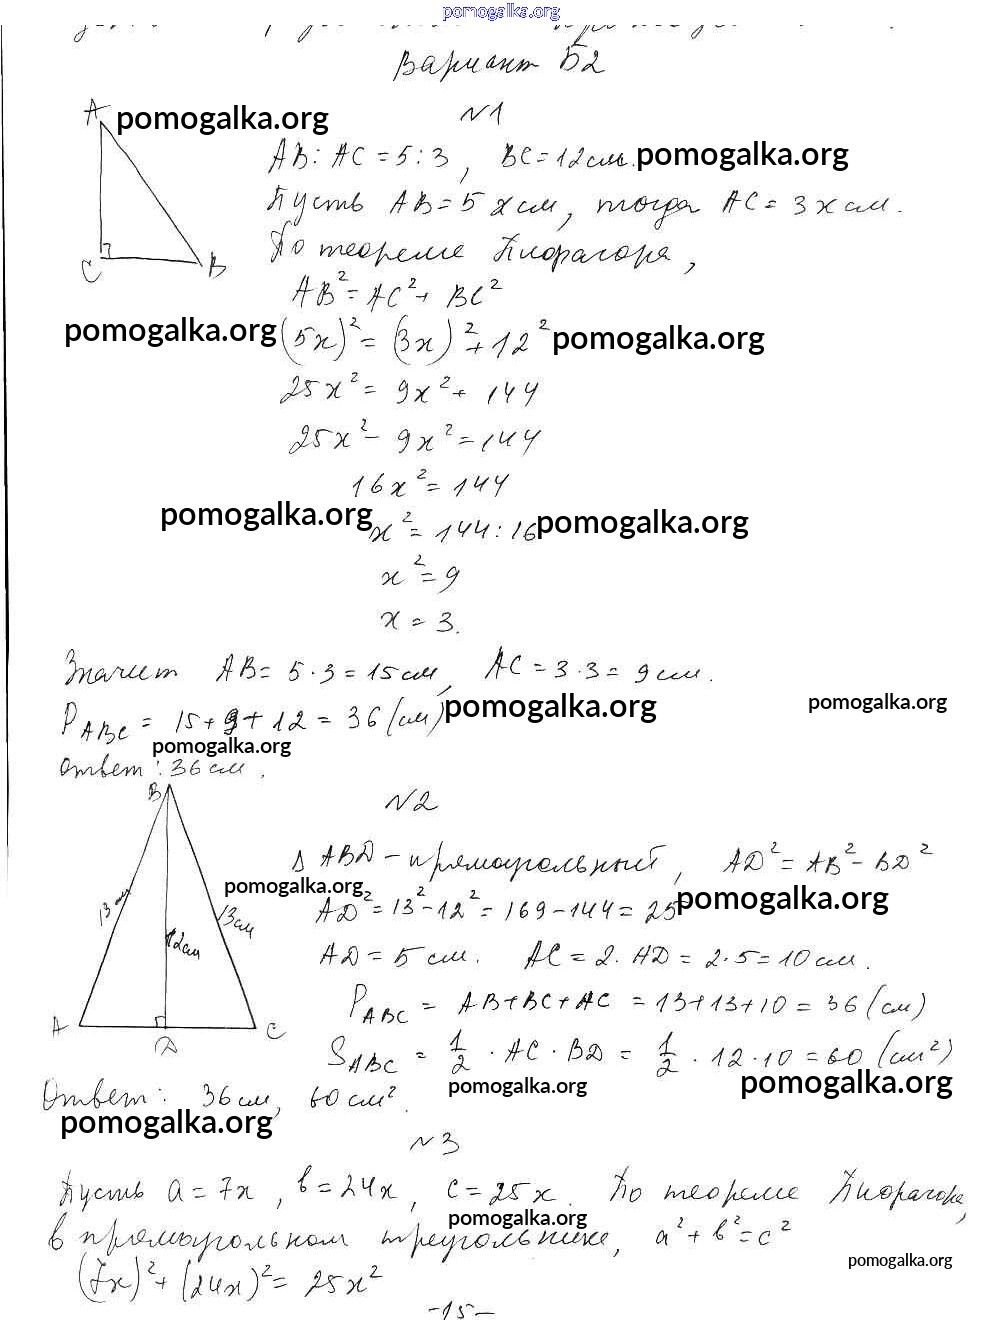 pomogalka.org
Вариант Б2
A pomogalka.org N1
AB : AC = 5 : 3, BC = 12 см. pomogalka.org
Пусть AB = 5x см, тогда AC = 3x см.
C B По теореме Пифагора,
AB² = AC² + BC²
pomogalka.org (5x)² = (3x)² + 12² pomogalka.org
25x² = 9x² + 144
25x² - 9x² = 144
16x² = 144
pomogalka.org x² = 144 : 16 pomogalka.org
x² = 9
x = 3.
Значит AB = 5 · 3 = 15 см, AC = 3 · 3 = 9 см.
P ABC = 15 + 9 + 12 = 36 (см) pomogalka.org pomogalka.org
pomogalka.org
Ответ: 36 см.
B N2
Δ ABD - прямоугольный, AD² = AB² - BD²
pomogalka.org pomogalka.org
13 см 13 см AD² = 13² - 12² = 169 - 144 = 25
12 см AD = 5 см. AC = 2 · AD = 2 · 5 = 10 см.
P ABC = AB + BC + AC = 13 + 13 + 10 = 36 (см)
A D C S ABC = 1/2 · AC · BD = 1/2 · 12 · 10 = 60 (см²)
pomogalka.org pomogalka.org
Ответ: 36 см, 60 см².
pomogalka.org
N3
Пусть a = 7x, b = 24x, c = 25x. По теореме Пифагора,
pomogalka.org
в прямоугольном треугольнике, a² + b² = c²
pomogalka.org
(7x)² + (24x)² = 25x²
-15-